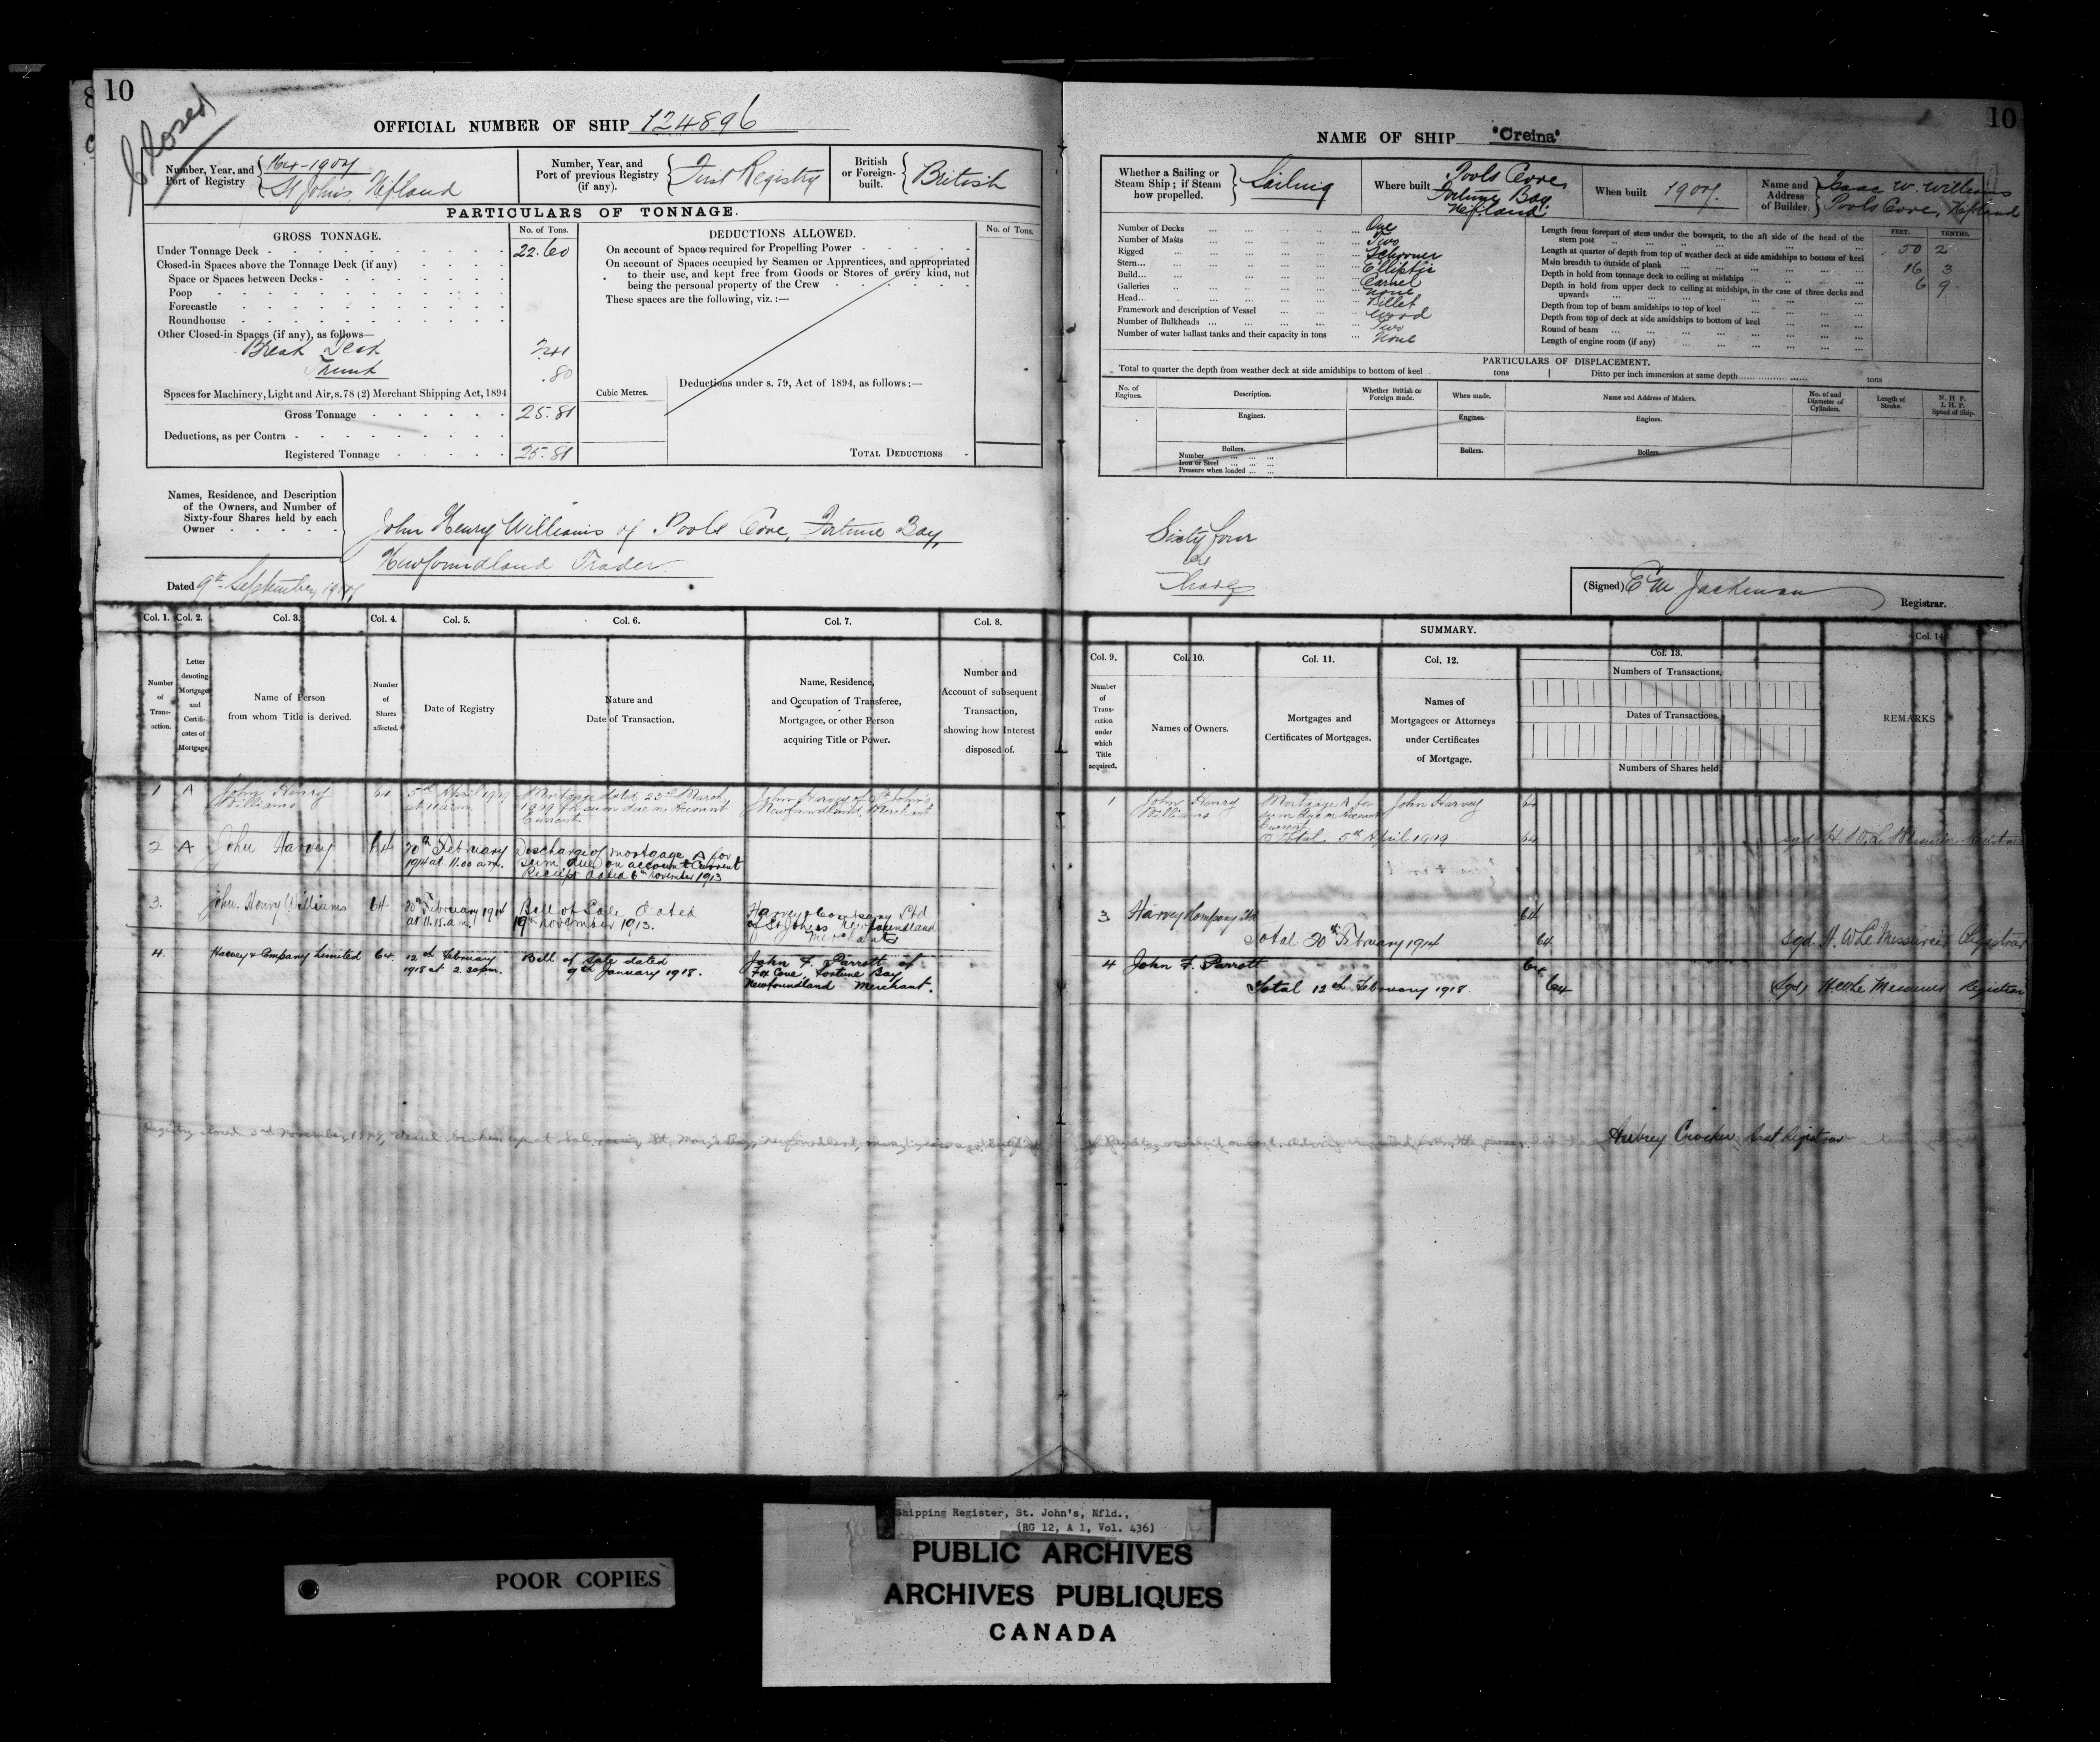 10
Closed
OFFICIAL NUMBER OF SHIP 124896
Number, Year, and Port of Registry
St John's, Nfland
Number, Year, and Port of previous Registry (if any).
First Registry
British or Foreign-built.
British
PARTICULARS OF TONNAGE.
GROSS TONNAGE.
No. of Tons.
Under Tonnage Deck 22.60
Closed-in Spaces above the Tonnage Deck (if any)
Space or Spaces between Decks
Poop
Forecastle
Roundhouse
Other Closed-in Spaces (if any), as follows—
Break Deck 2.41
Trunk .80
Spaces for Machinery, Light and Air, s. 78 (2) Merchant Shipping Act, 1894
Gross Tonnage 25.81
Deductions, as per Contra
Registered Tonnage 25.81
DEDUCTIONS ALLOWED.
No. of Tons.
On account of Space required for Propelling Power
On account of Spaces occupied by Seamen or Apprentices, and appropriated
to their use, and kept free from Goods or Stores of every kind, not
being the personal property of the Crew
These spaces are the following, viz.:—
Cubic Metres.
Deductions under s. 79, Act of 1894, as follows:—
TOTAL DEDUCTIONS
Names, Residence, and Description
of the Owners, and Number of
Sixty-four Shares held by each
Owner
John Henry Williams of Pools Cove, Fortune Bay,
Newfoundland Trader
Dated 9th September
Col. 1. Col. 2. Col. 3. Col. 4. Col. 5. Col. 6. Col. 7. Col. 8.
Number of Transaction.
Letter denoting Mortgage and Certificates of Mortgage.
Name of Person from whom Title is derived.
Number of Shares affected.
Date of Registry
Nature and Date of Transaction.
Name, Residence, and Occupation of Transferee, Mortgagee, or other Person acquiring Title or Power.
Number and Account of subsequent Transaction, showing how Interest disposed of.
1 A John Henry Williams 64 5th April 1909 Mortgage dated 23rd March 1909 for sum due on Account Current John Harvey of St John's Newfoundland, Merchant
2 A John Harvey 64 20th February 1914 at 11.00 a.m. Discharge of mortgage A for sum due on account Current Receipt dated 6th November 1913
3. John Henry Williams 64 20th February 1914 at 11.15 a.m. Bill of Sale dated 19th November 1913. Harvey & Company Ltd of St John's Newfoundland Merchants
4. Harvey & Company Limited 64. 12th February 1918 at 2.30 p.m. Bill of Sale dated 9th January 1918. John F. Parrott of Fox Cove, Fortune Bay Newfoundland Merchant.
Registry closed 3rd November
10
NAME OF SHIP "Creina"
Whether a Sailing or Steam Ship; if Steam how propelled.
Sailing
Where built
Pools Cove, Fortune Bay, Nfland.
When built
Name and Address of Builder.
Isaac W. Williams
Pools Cove, Nfland
Number of Decks One
Number of Masts Two
Rigged Schooner
Stern Elliptic
Build Carvel
Galleries None
Head Billet
Framework and description of Vessel Wood
Number of Bulkheads Two
Number of water ballast tanks and their capacity in tons None
FEET. TENTHS.
Length from forepart of stem under the bowsprit, to the aft side of the head of the stern post 50 2
Length at quarter of depth from top of weather deck at side amidships to bottom of keel
Main breadth to outside of plank 16 3
Depth in hold from tonnage deck to ceiling at midships 6 9
Depth in hold from upper deck to ceiling at midships, in the case of three decks and upwards
Depth from top of beam amidships to top of keel
Depth from top of deck at side amidships to bottom of keel
Round of beam
Length of engine room (if any)
PARTICULARS OF DISPLACEMENT.
Total to quarter the depth from weather deck at side amidships to bottom of keel tons Ditto per inch immersion at same depth tons
No. of Engines.
Description.
Whether British or Foreign made.
When made.
Name and Address of Makers.
No. of and Diameter of Cylinders.
Length of Stroke.
N. H. P.
I. H. P.
Speed of Ship.
Engines. Engines. Engines.
Boilers. Boilers. Boilers.
Number
Iron or Steel
Pressure when loaded
Sixty four
Shares
(Signed) E M Jackman Registrar.
SUMMARY.
Col. 9. Col. 10. Col. 11. Col. 12. Col. 13. Col. 14
Number of Transaction under which Title acquired.
Names of Owners.
Mortgages and Certificates of Mortgages.
Names of Mortgagees or Attorneys under Certificates of Mortgage.
Numbers of Transactions.
Dates of Transactions.
Numbers of Shares held
REMARKS
1 John Henry Williams Mortgage A for sum due on Account Current John Harvey 64
Total 5th April 1909 64
3 Harvey & Company Ltd 64
Total 20th February 1914 64 sgd. H. W Le Messurier Registrar
4 John F. Parrott 64
Total 12th February 1918 64 (Sgd) H W Le Messurier Registrar
Aubrey Crocker Asst Registrar
Shipping Register, St. John's, Nfld.,
(RG 12, A 1, Vol. 436)
POOR COPIES
PUBLIC ARCHIVES
ARCHIVES PUBLIQUES
CANADA